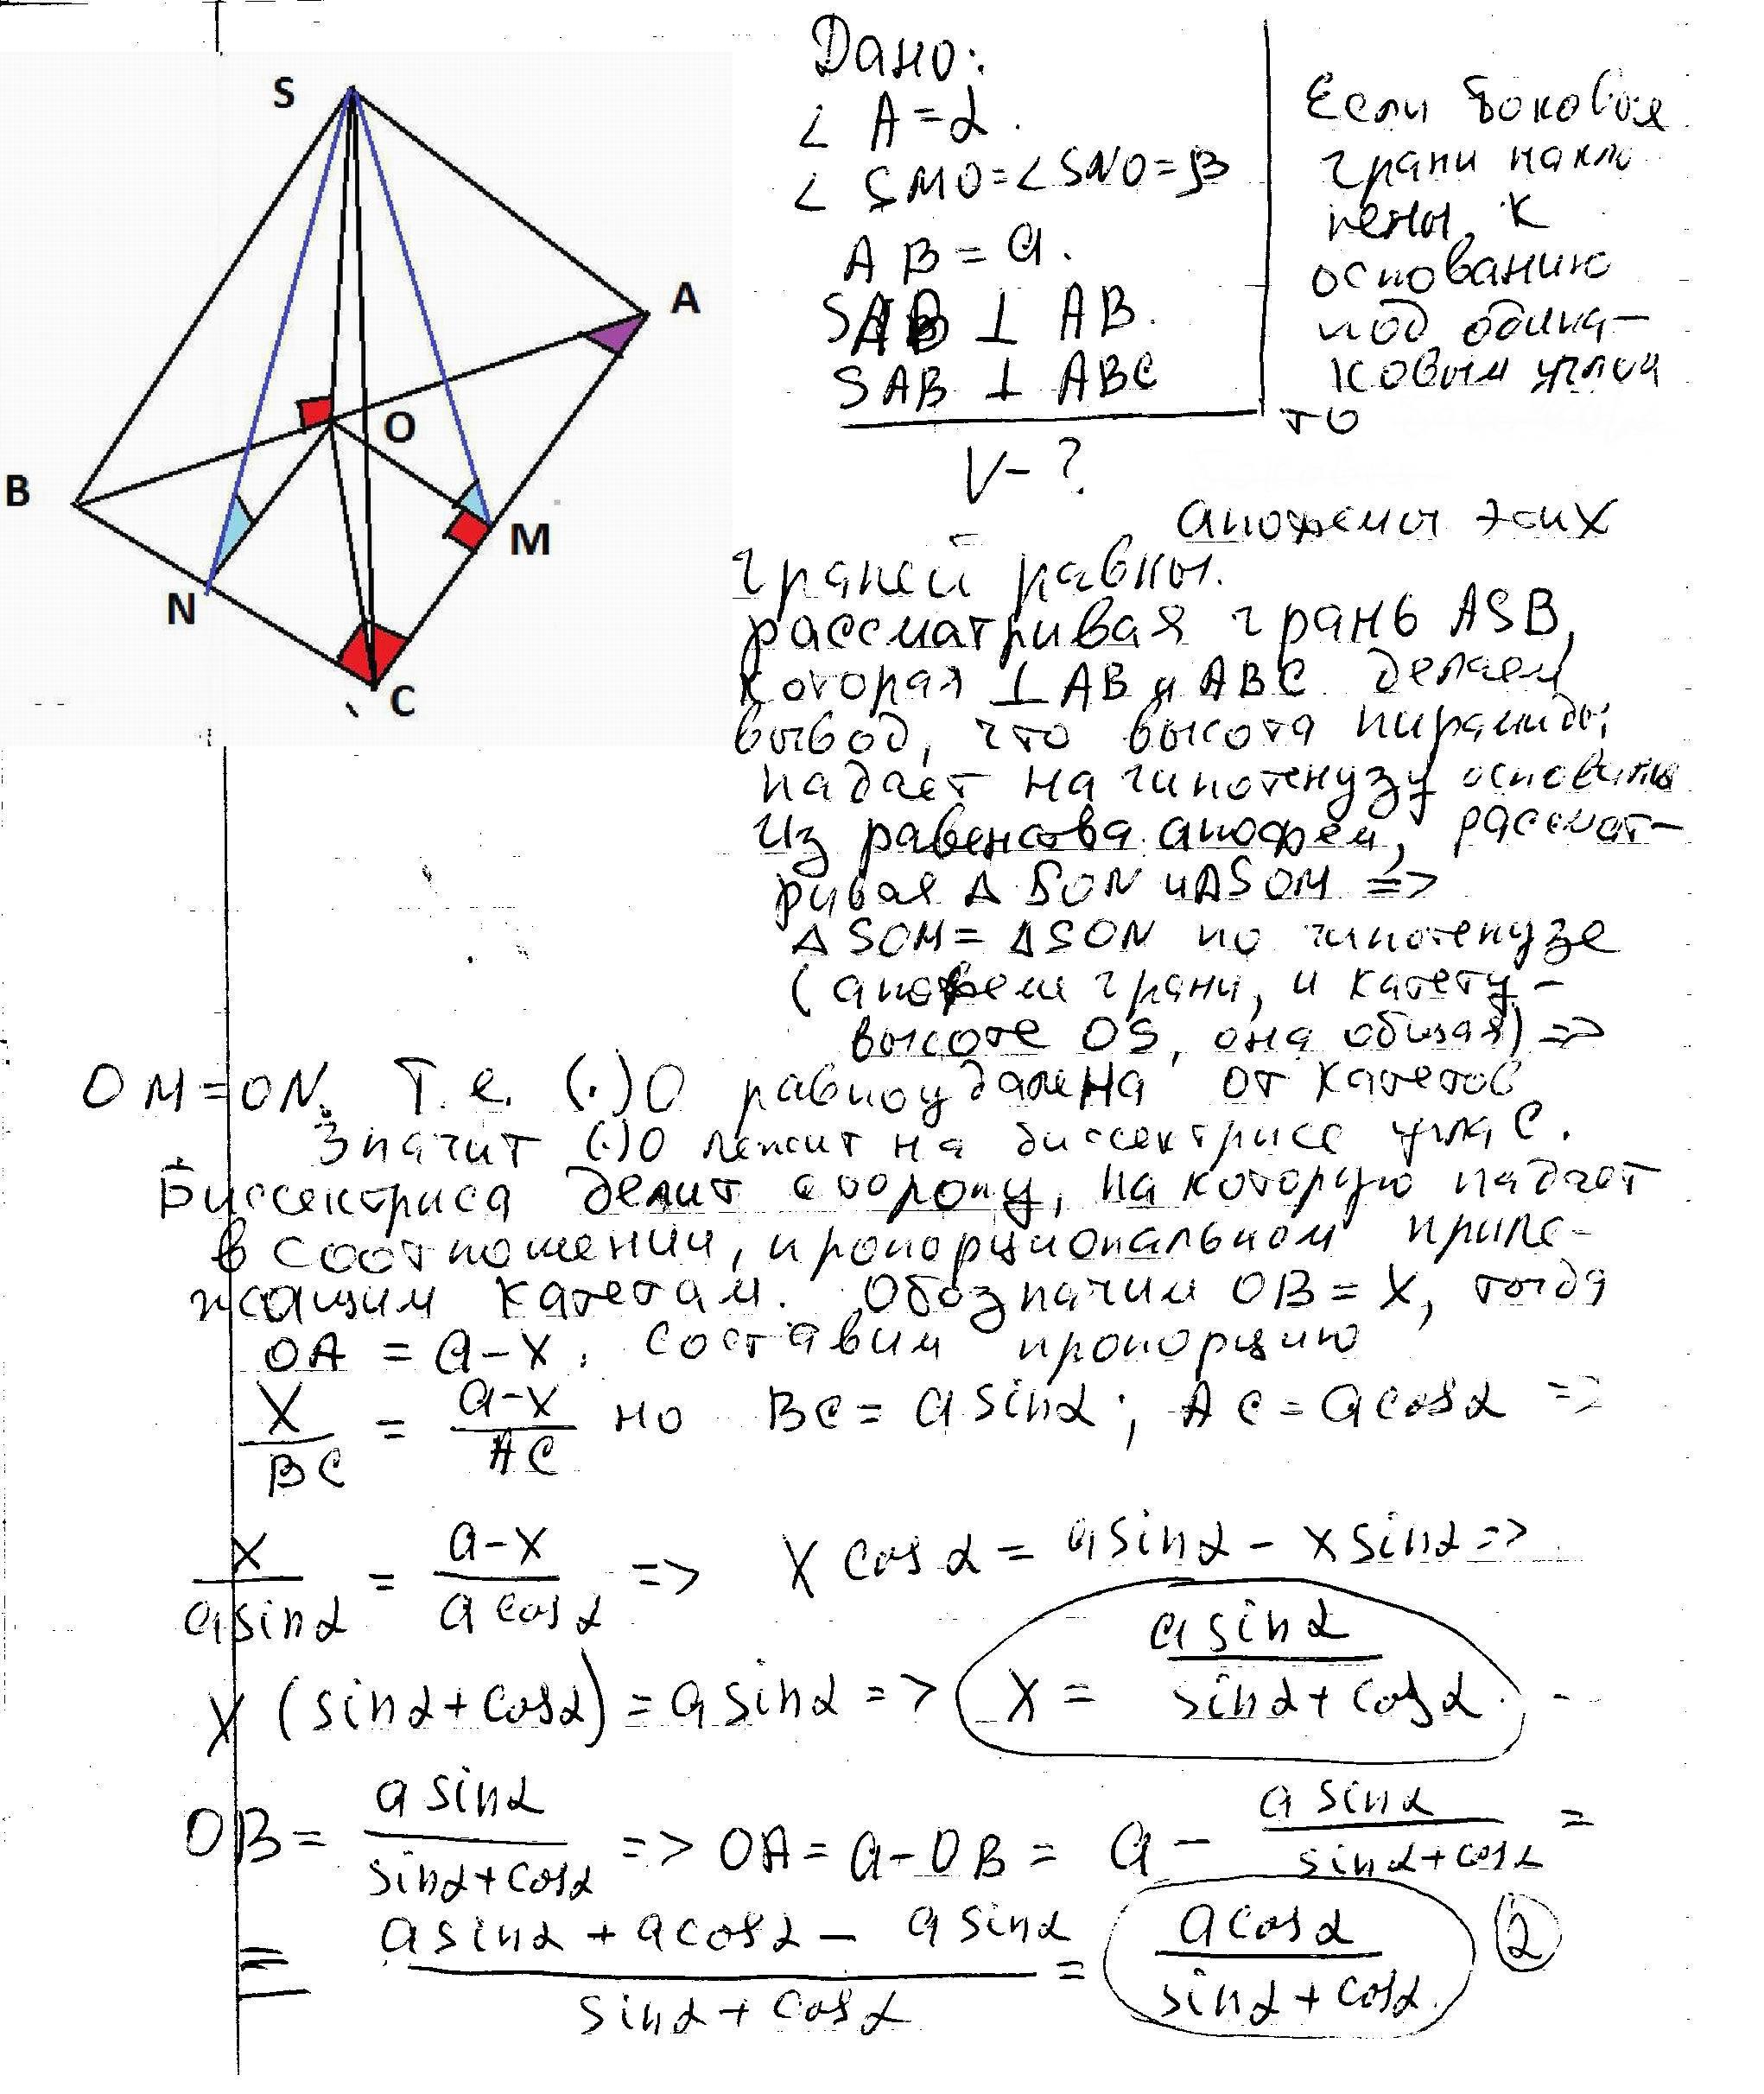 S
A
O
B
M
N
C
Дано:
∠ A = α.
∠ SMO = ∠ SNO = β
AB = a.
SAB ⊥ AB.
SAB ⊥ ABC
V - ?
Если боковые
грани накло
нены к
основанию
под одина-
ковым углом
то
апофемы этих
граней равны.
рассматривая грань ASB,
которая ⊥ AB и ABC делаем
вывод, что высота пирамиды
падает на гипотенузу основания
Из равенсва апофем, рассмат-
ривая Δ SON и ΔSOM =>
Δ SOM = Δ SON по гипотенузе
(апофеме грани, и катету -
высоте OS, она общая) =>
OM = ON. Т.е. (.)O равноудалена от катетов
Значит (.)O лежит на биссектрисе угла C.
Биссектриса делит сторону, на которую падает
в соотношении, пропорциональном приле-
жащим катетам. Обозначим OB = X, тогда
OA = a - X. составим пропорцию
X/BC = (a-X)/AC но BC = a sinα; AC = a cosα =>
X/(a sinα) = (a-X)/(a cosα) => X cosα = a sinα - X sinα =>
X (sinα + cosα) = a sinα => X = a sinα/(sinα + cosα)
OB = a sinα/(sinα + cosα) => OA = a - OB = a - a sinα/(sinα + cosα) =
= (a sinα + a cosα - a sinα)/(sinα + cosα) = a cosα/(sinα + cosα) ②